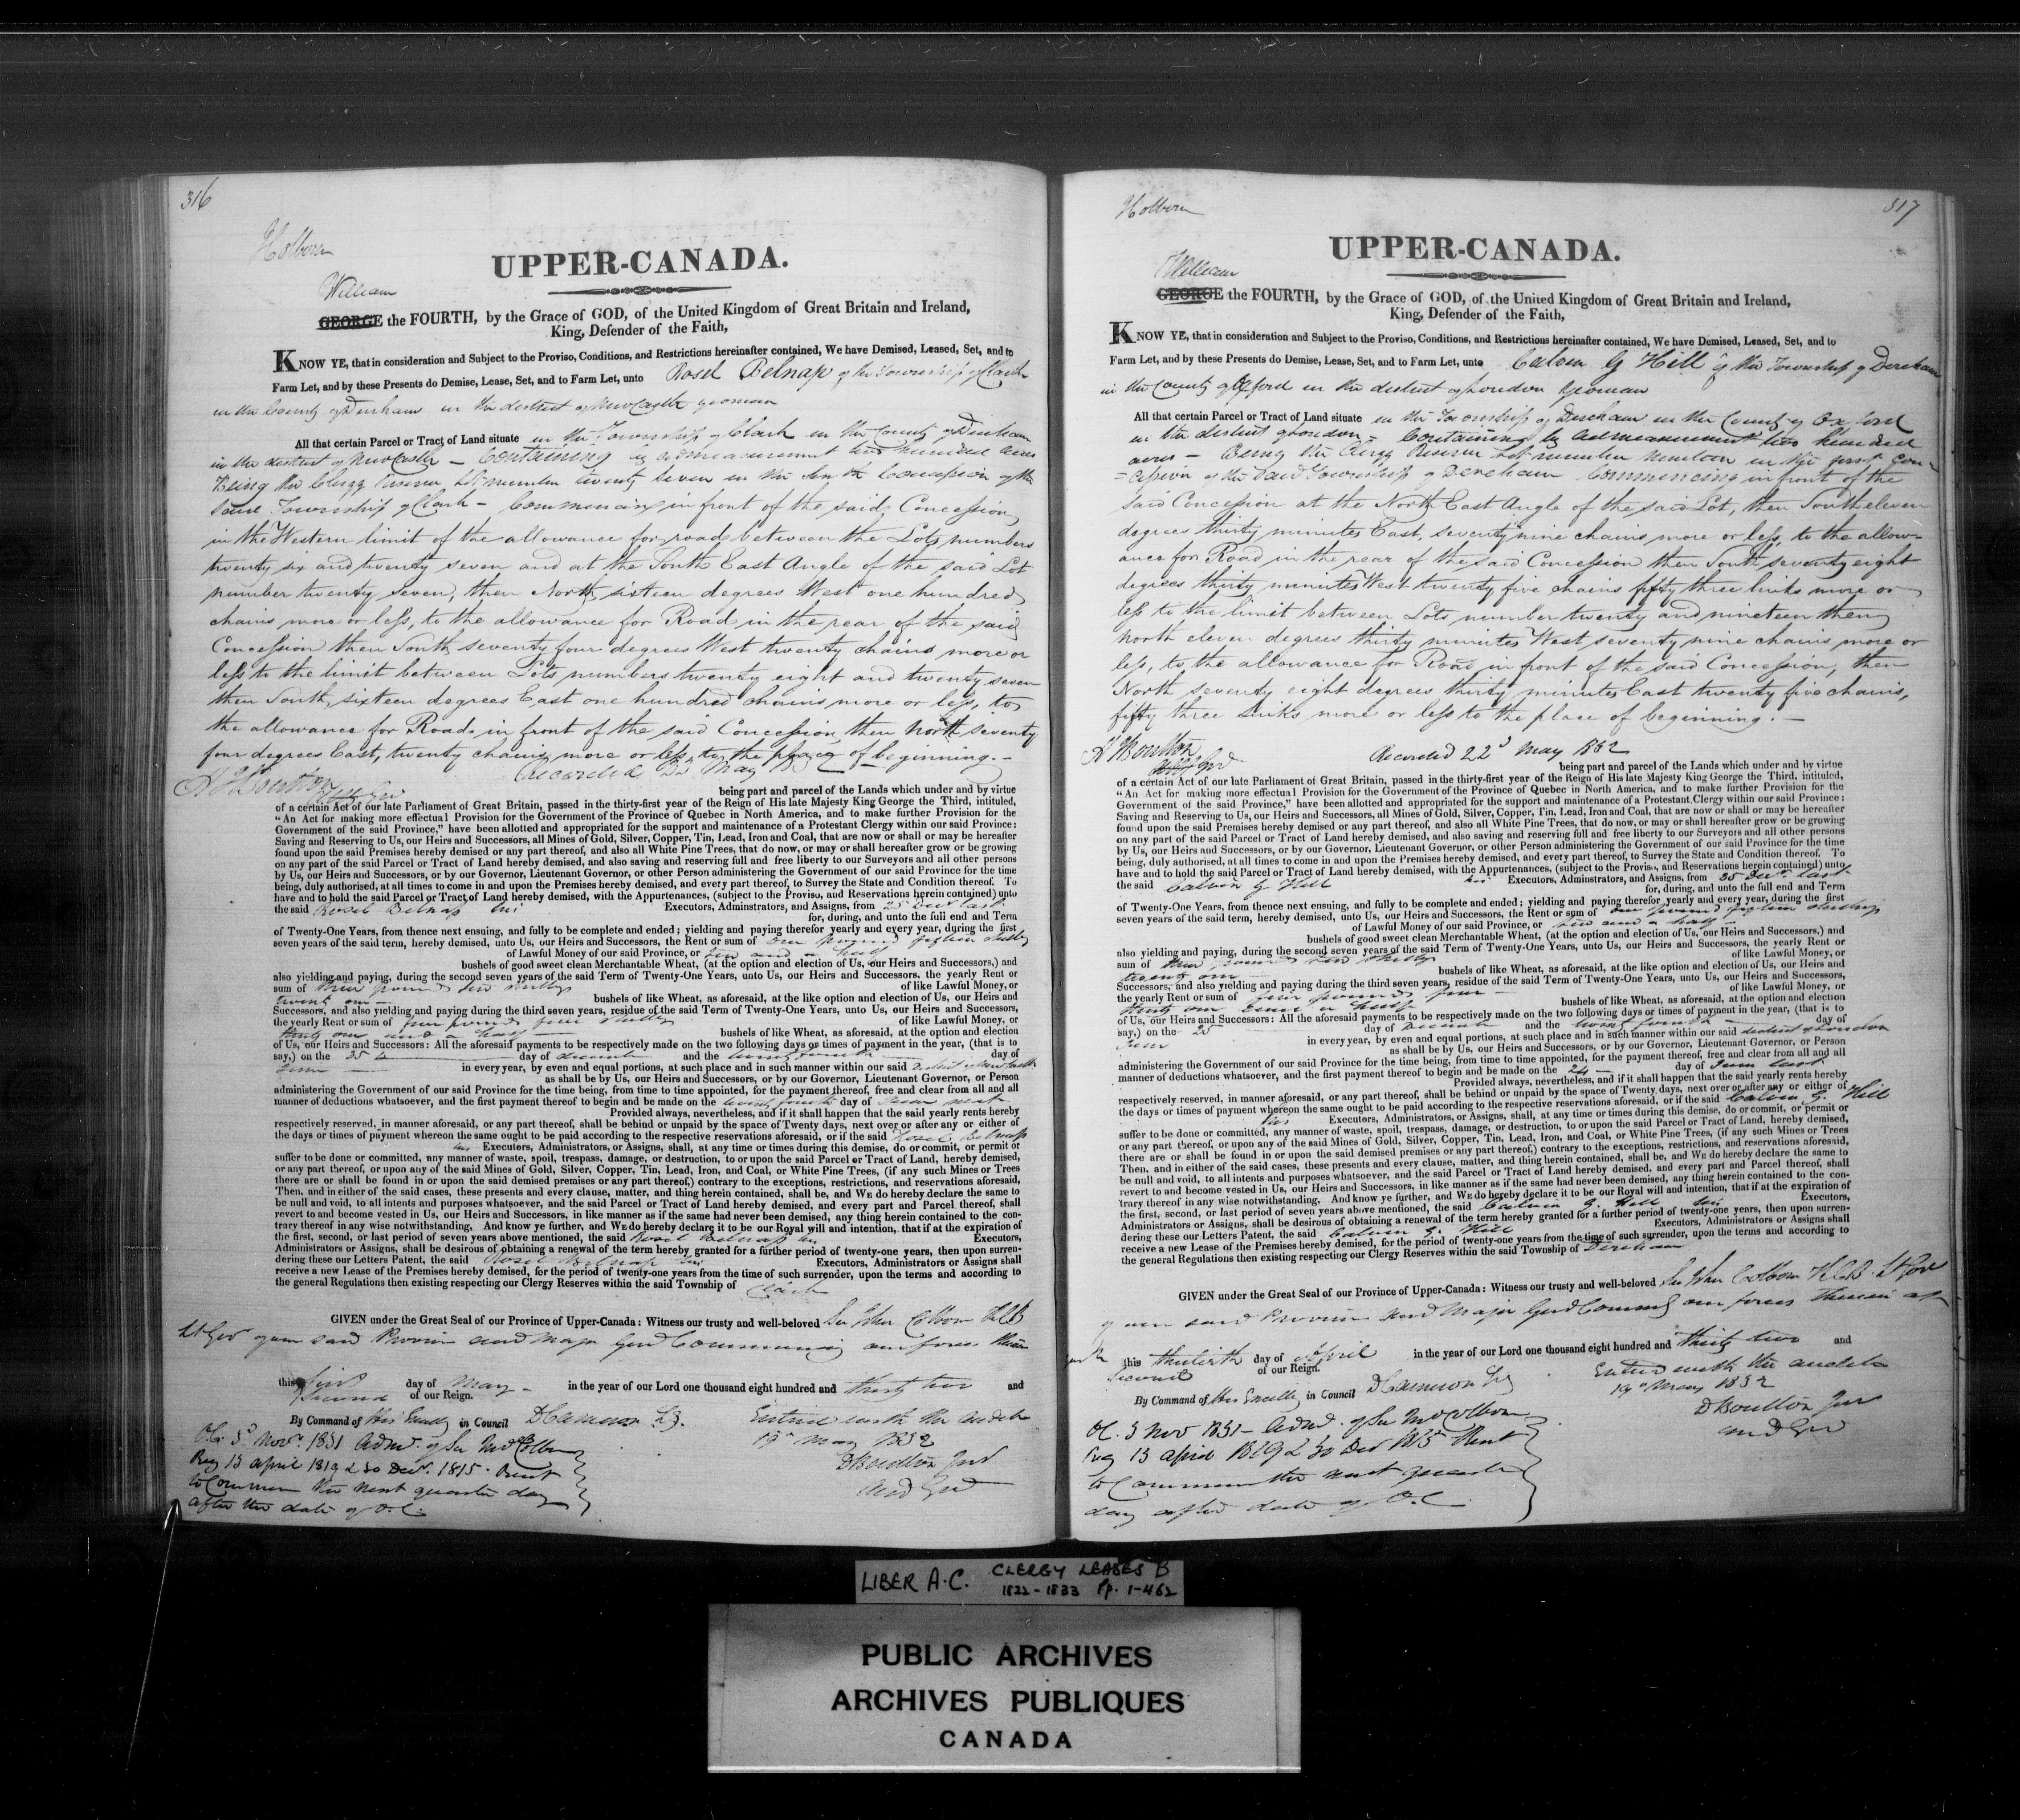 316
UPPER-CANADA.
William
GEORGE the FOURTH, by the Grace of GOD, of the United Kingdom of Great Britain and Ireland,
King, Defender of the Faith,
KNOW YE, that in consideration and Subject to the Proviso, Conditions, and Restrictions hereinafter contained, We have Demised, Leased, Set, and to
Farm Let, and by these Presents do Demise, Lease, Set, and to Farm Let, unto Rosel Belnap of the Township of Clark
in the County of Durham in the district of Newcastle yeoman
All that certain Parcel or Tract of Land situate in the Township of Clark in the County of Durham
in the district of Newcastle - Containing by admeasurement two hundred acres
Being the Clergy Reserve Lot number twenty seven in the Concession of the
said Township of Clark - Commencing in front of the said Concession
in the Western limit of the allowance for road between the Lots numbers
twenty six and twenty seven and at the South East Angle of the said Lot
number twenty seven, then North sixteen degrees West one hundred
chains more or less, to the allowance for Road in the rear of the said
Concession then South seventy four degrees West twenty chains more or
less to the limit between Lots numbers twenty eight and twenty seven
then South sixteen degrees East one hundred chains more or less, to
the allowance for Road in front of the said Concession then North seventy
four degrees East, twenty chains more or less to the place of beginning. -
H J Boulton Recorded 22 May 1832
being part and parcel of the Lands which under and by virtue
of a certain Act of our late Parliament of Great Britain, passed in the thirty-first year of the Reign of His late Majesty King George the Third, intituled,
"An Act for making more effectual Provision for the Government of the Province of Quebec in North America, and to make further Provision for the
Government of the said Province," have been allotted and appropriated for the support and maintenance of a Protestant Clergy within our said Province:
Saving and Reserving to Us, our Heirs and Successors, all Mines of Gold, Silver, Copper, Tin, Lead, Iron and Coal, that are now or shall or may be hereafter
found upon the said Premises hereby demised or any part thereof, and also all White Pine Trees, that do now, or may or shall hereafter grow or be growing
on any part of the said Parcel or Tract of Land hereby demised, and also saving and reserving full and free liberty to our Surveyors and all other persons
by Us, our Heirs and Successors, or by our Governor, Lieutenant Governor, or other Person administering the Government of our said Province for the time
being, duly authorised, at all times to come in and upon the Premises hereby demised, and every part thereof, to Survey the State and Condition thereof. To
have and to hold the said Parcel or Tract of Land hereby demised, with the Appurtenances, (subject to the Proviso, and Reservations herein contained) unto
the said Rosel Belnap his Executors, Adminstrators, and Assigns, from 25 Decr last
for, during, and unto the full end and Term
of Twenty-One Years, from thence next ensuing, and fully to be complete and ended; yielding and paying therefor yearly and every year, during the first
seven years of the said term, hereby demised, unto Us, our Heirs and Successors, the Rent or sum of one pound fifteen shillings
of Lawful Money of our said Province, or ten and a half
bushels of good sweet clean Merchantable Wheat, (at the option and election of Us, our Heirs and Successors,) and
also yielding and paying, during the second seven years of the said Term of Twenty-One Years, unto Us, our Heirs and Successors, the yearly Rent or
sum of three pounds ten shillings of like Lawful Money, or
twenty one - bushels of like Wheat, as aforesaid, at the like option and election of Us, our Heirs and
Successors, and also yielding and paying during the third seven years, residue of the said Term of Twenty-One Years, unto Us, our Heirs and Successors,
the yearly Rent or sum of five pounds five shillings of like Lawful Money, or
thirty one and a half bushels of like Wheat, as aforesaid, at the option and election
of Us, our Heirs and Successors: All the aforesaid payments to be respectively made on the two following days or times of payment in the year, (that is to
say,) on the 25 day of december and the twenty fourth day of
June in every year, by even and equal portions, at such place and in such manner within our said District of Newcastle
as shall be by Us, our Heirs and Successors, or by our Governor, Lieutenant Governor, or Person
administering the Government of our said Province for the time being, from time to time appointed, for the payment thereof, free and clear from all and all
manner of deductions whatsoever, and the first payment thereof to begin and be made on the twenty fourth day of June next
Provided always, nevertheless, and if it shall happen that the said yearly rents hereby
respectively reserved, in manner aforesaid, or any part thereof, shall be behind or unpaid by the space of Twenty days, next over or after any or either of
the days or times of payment whereon the same ought to be paid according to the respective reservations aforesaid, or if the said Rosel Belnap
his Executors, Administrators, or Assigns, shall, at any time or times during this demise, do or commit, or permit or
suffer to be done or committed, any manner of waste, spoil, trespass, damage, or destruction, to or upon the said Parcel or Tract of Land, hereby demised,
or any part thereof, or upon any of the said Mines of Gold, Silver, Copper, Tin, Lead, Iron, and Coal, or White Pine Trees, (if any such Mines or Trees
there are or shall be found in or upon the said demised premises or any part thereof,) contrary to the exceptions, restrictions, and reservations aforesaid,
Then, and in either of the said cases, these presents and every clause, matter, and thing herein contained, shall be, and WE do hereby declare the same to
be null and void, to all intents and purposes whatsoever, and the said Parcel or Tract of Land hereby demised, and every part and Parcel thereof, shall
revert to and become vested in Us, our Heirs and Successors, in like manner as if the same had never been demised, any thing herein contained to the con-
trary thereof in any wise notwithstanding. And know ye further, and WE do hereby declare it to be our Royal will and intention, that if at the expiration of
the first, second, or last period of seven years above mentioned, the said Rosel Belnap his Executors,
Administrators or Assigns, shall be desirous of obtaining a renewal of the term hereby granted for a further period of twenty-one years, then upon surren-
dering these our Letters Patent, the said Rosel Belnap his Executors, Administrators or Assigns shall
receive a new Lease of the Premises hereby demised, for the period of twenty-one years from the time of such surrender, upon the terms and according to
the general Regulations then existing respecting our Clergy Reserves within the said Township of Clark
GIVEN under the Great Seal of our Province of Upper-Canada: Witness our trusty and well-beloved Sir John Colborne KCB
Lt Govr of our said Province and Major Genl Commanding our forces therein
this first day of May - in the year of our Lord one thousand eight hundred and thirty two and
Second of our Reign.
By Command of His Excelly in Council D Cameron Sy.
Entered with the auditor
19th May 1832
D Boulton Junr
Aud Genl
O.C. 3d Novr 1831 Admn. of Sir Jno Colborne
Reg 13 april 1819 & 30 Decr. 1815 - Rent
to Commence the next quarter day
after the date of O.C.
Holborn
317
UPPER-CANADA.
William
GEORGE the FOURTH, by the Grace of GOD, of the United Kingdom of Great Britain and Ireland,
King, Defender of the Faith,
KNOW YE, that in consideration and Subject to the Proviso, Conditions, and Restrictions hereinafter contained, We have Demised, Leased, Set, and to
Farm Let, and by these Presents do Demise, Lease, Set, and to Farm Let, unto Calvin G Hill of the Township of Dereham
in the County of Oxford in the district of London Yeoman
All that certain Parcel or Tract of Land situate in the Township of Dereham in the County of Oxford
in the district of London - Containing by admeasurement two hundred
acres - Being the Clergy Reserve Lot number nineteen in the first Con-
=cession of the said Township of Dereham Commencing in front of the
said Concession at the North East Angle of the said Lot, then South eleven
degrees thirty minutes East, seventy nine chains more or less, to the allow-
ance for Road in the rear of the said Concession then South seventy eight
degrees thirty minutes West twenty five chains fifty three links more or
less to the limit between Lots number twenty and nineteen then
North eleven degrees thirty minutes West seventy nine chains more or
less, to the allowance for Road in front of the said Concession, then
North seventy eight degrees thirty minutes East twenty five chains,
fifty three links more or less to the place of beginning. -
H J Boulton Recorded 22d May 1832
being part and parcel of the Lands which under and by virtue
of a certain Act of our late Parliament of Great Britain, passed in the thirty-first year of the Reign of His late Majesty King George the Third, intituled,
"An Act for making more effectual Provision for the Government of the Province of Quebec in North America, and to make further Provision for the
Government of the said Province," have been allotted and appropriated for the support and maintenance of a Protestant Clergy within our said Province:
Saving and Reserving to Us, our Heirs and Successors, all Mines of Gold, Silver, Copper, Tin, Lead, Iron and Coal, that are now or shall or may be hereafter
found upon the said Premises hereby demised or any part thereof, and also all White Pine Trees, that do now, or may or shall hereafter grow or be growing
on any part of the said Parcel or Tract of Land hereby demised, and also saving and reserving full and free liberty to our Surveyors and all other persons
by Us, our Heirs and Successors, or by our Governor, Lieutenant Governor, or other Person administering the Government of our said Province for the time
being, duly authorised, at all times to come in and upon the Premises hereby demised, and every part thereof, to Survey the State and Condition thereof. To
have and to hold the said Parcel or Tract of Land hereby demised, with the Appurtenances, (subject to the Proviso, and Reservations herein contained) unto
the said Calvin G Hill his Executors, Adminstrators, and Assigns, from 25 Decr. last
for, during, and unto the full end and Term
of Twenty-One Years, from thence next ensuing, and fully to be complete and ended; yielding and paying therefor yearly and every year, during the first
seven years of the said term, hereby demised, unto Us, our Heirs and Successors, the Rent or sum of one pound fifteen shillings
of Lawful Money of our said Province, or ten and a half -
bushels of good sweet clean Merchantable Wheat, (at the option and election of Us, our Heirs and Successors,) and
also yielding and paying, during the second seven years of the said Term of Twenty-One Years, unto Us, our Heirs and Successors, the yearly Rent or
sum of three pounds ten shillings of like Lawful Money, or
twenty one - bushels of like Wheat, as aforesaid, at the like option and election of Us, our Heirs and
Successors, and also yielding and paying during the third seven years, residue of the said Term of Twenty-One Years, unto Us, our Heirs and Successors,
the yearly Rent or sum of five pounds five - of like Lawful Money, or
thirty one and a half bushels of like Wheat, as aforesaid, at the option and election
of Us, our Heirs and Successors: All the aforesaid payments to be respectively made on the two following days or times of payment in the year, (that is to
say,) on the 25 day of December and the twenty fourth - day of
June in every year, by even and equal portions, at such place and in such manner within our said district of London
as shall be by Us, our Heirs and Successors, or by our Governor, Lieutenant Governor, or Person
administering the Government of our said Province for the time being, from time to time appointed, for the payment thereof, free and clear from all and all
manner of deductions whatsoever, and the first payment thereof to begin and be made on the 24 - day of June last
Provided always, nevertheless, and if it shall happen that the said yearly rents hereby
respectively reserved, in manner aforesaid, or any part thereof, shall be behind or unpaid by the space of Twenty days, next over or after any or either of
the days or times of payment whereon the same ought to be paid according to the respective reservations aforesaid, or if the said Calvin G. Hill
his Executors, Administrators, or Assigns, shall, at any time or times during this demise, do or commit, or permit or
suffer to be done or committed, any manner of waste, spoil, trespass, damage, or destruction, to or upon the said Parcel or Tract of Land, hereby demised,
or any part thereof, or upon any of the said Mines of Gold, Silver, Copper, Tin, Lead, Iron, and Coal, or White Pine Trees, (if any such Mines or Trees
there are or shall be found in or upon the said demised premises or any part thereof,) contrary to the exceptions, restrictions, and reservations aforesaid,
Then, and in either of the said cases, these presents and every clause, matter, and thing herein contained, shall be, and WE do hereby declare the same to
be null and void, to all intents and purposes whatsoever, and the said Parcel or Tract of Land hereby demised, and every part and Parcel thereof, shall
revert to and become vested in Us, our Heirs and Successors, in like manner as if the same had never been demised, any thing herein contained to the con-
trary thereof in any wise notwithstanding. And know ye further, and WE do hereby declare it to be our Royal will and intention, that if at the expiration of
the first, second, or last period of seven years above mentioned, the said Calvin G. Hill his Executors,
Administrators or Assigns, shall be desirous of obtaining a renewal of the term hereby granted for a further period of twenty-one years, then upon surren-
dering these our Letters Patent, the said Calvin G. Hill Executors, Administrators or Assigns shall
receive a new Lease of the Premises hereby demised, for the period of twenty-one years from the time of such surrender, upon the terms and according to
the general Regulations then existing respecting our Clergy Reserves within the said Township of Dereham
GIVEN under the Great Seal of our Province of Upper-Canada: Witness our trusty and well-beloved Sir John Colborne K.C.B. Lt Govr
of our said Province and Major Genl Commg our forces therein at
York this thirtieth day of April in the year of our Lord one thousand eight hundred and thirty two and
Second of our Reign.
By Command of His Excelly in Council D Cameron Sy
Entered with the auditor
19th May 1832
D Boulton Junr
Aud Genl
O.C. 3 Nov 1831 - Admn. of Sir Jno Colborne
Reg 13 april 1819 & 30 Decr 1815 Rent
to Commence the next quarter
day after date of O.C.
LIBER A.C. CLERGY LEASES B
1822-1833 Pp. 1-462
PUBLIC ARCHIVES
ARCHIVES PUBLIQUES
CANADA